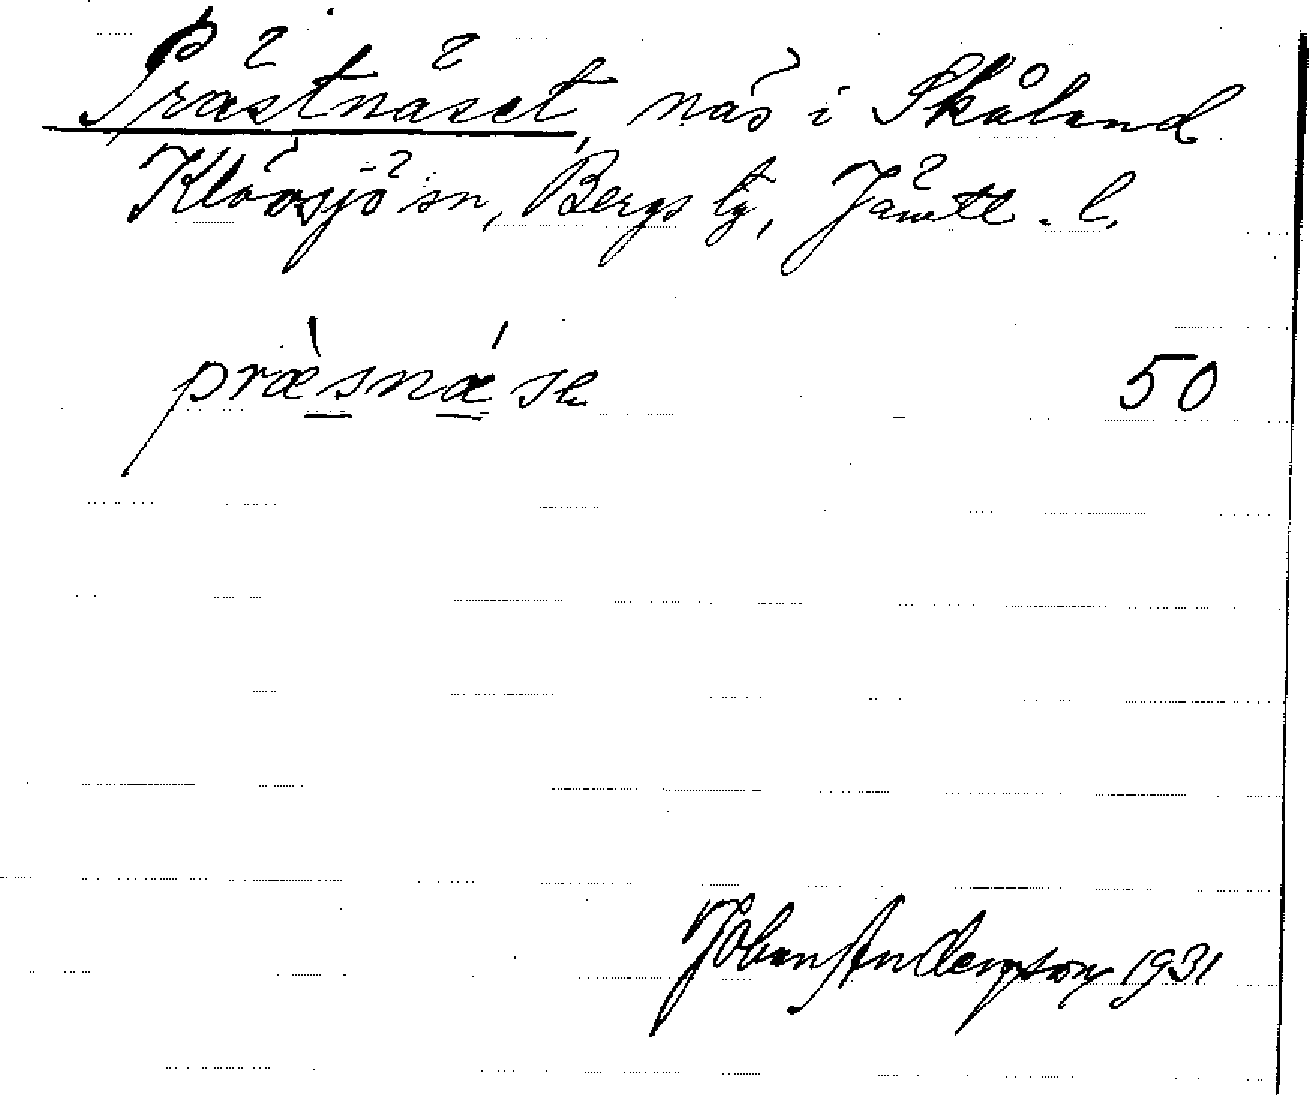 Prästnäset, näs i Skåland
Klövsjö sn, Bergs tg, Jämtl. l.
præ̀snǽ se 50
Johan Andersson 1931